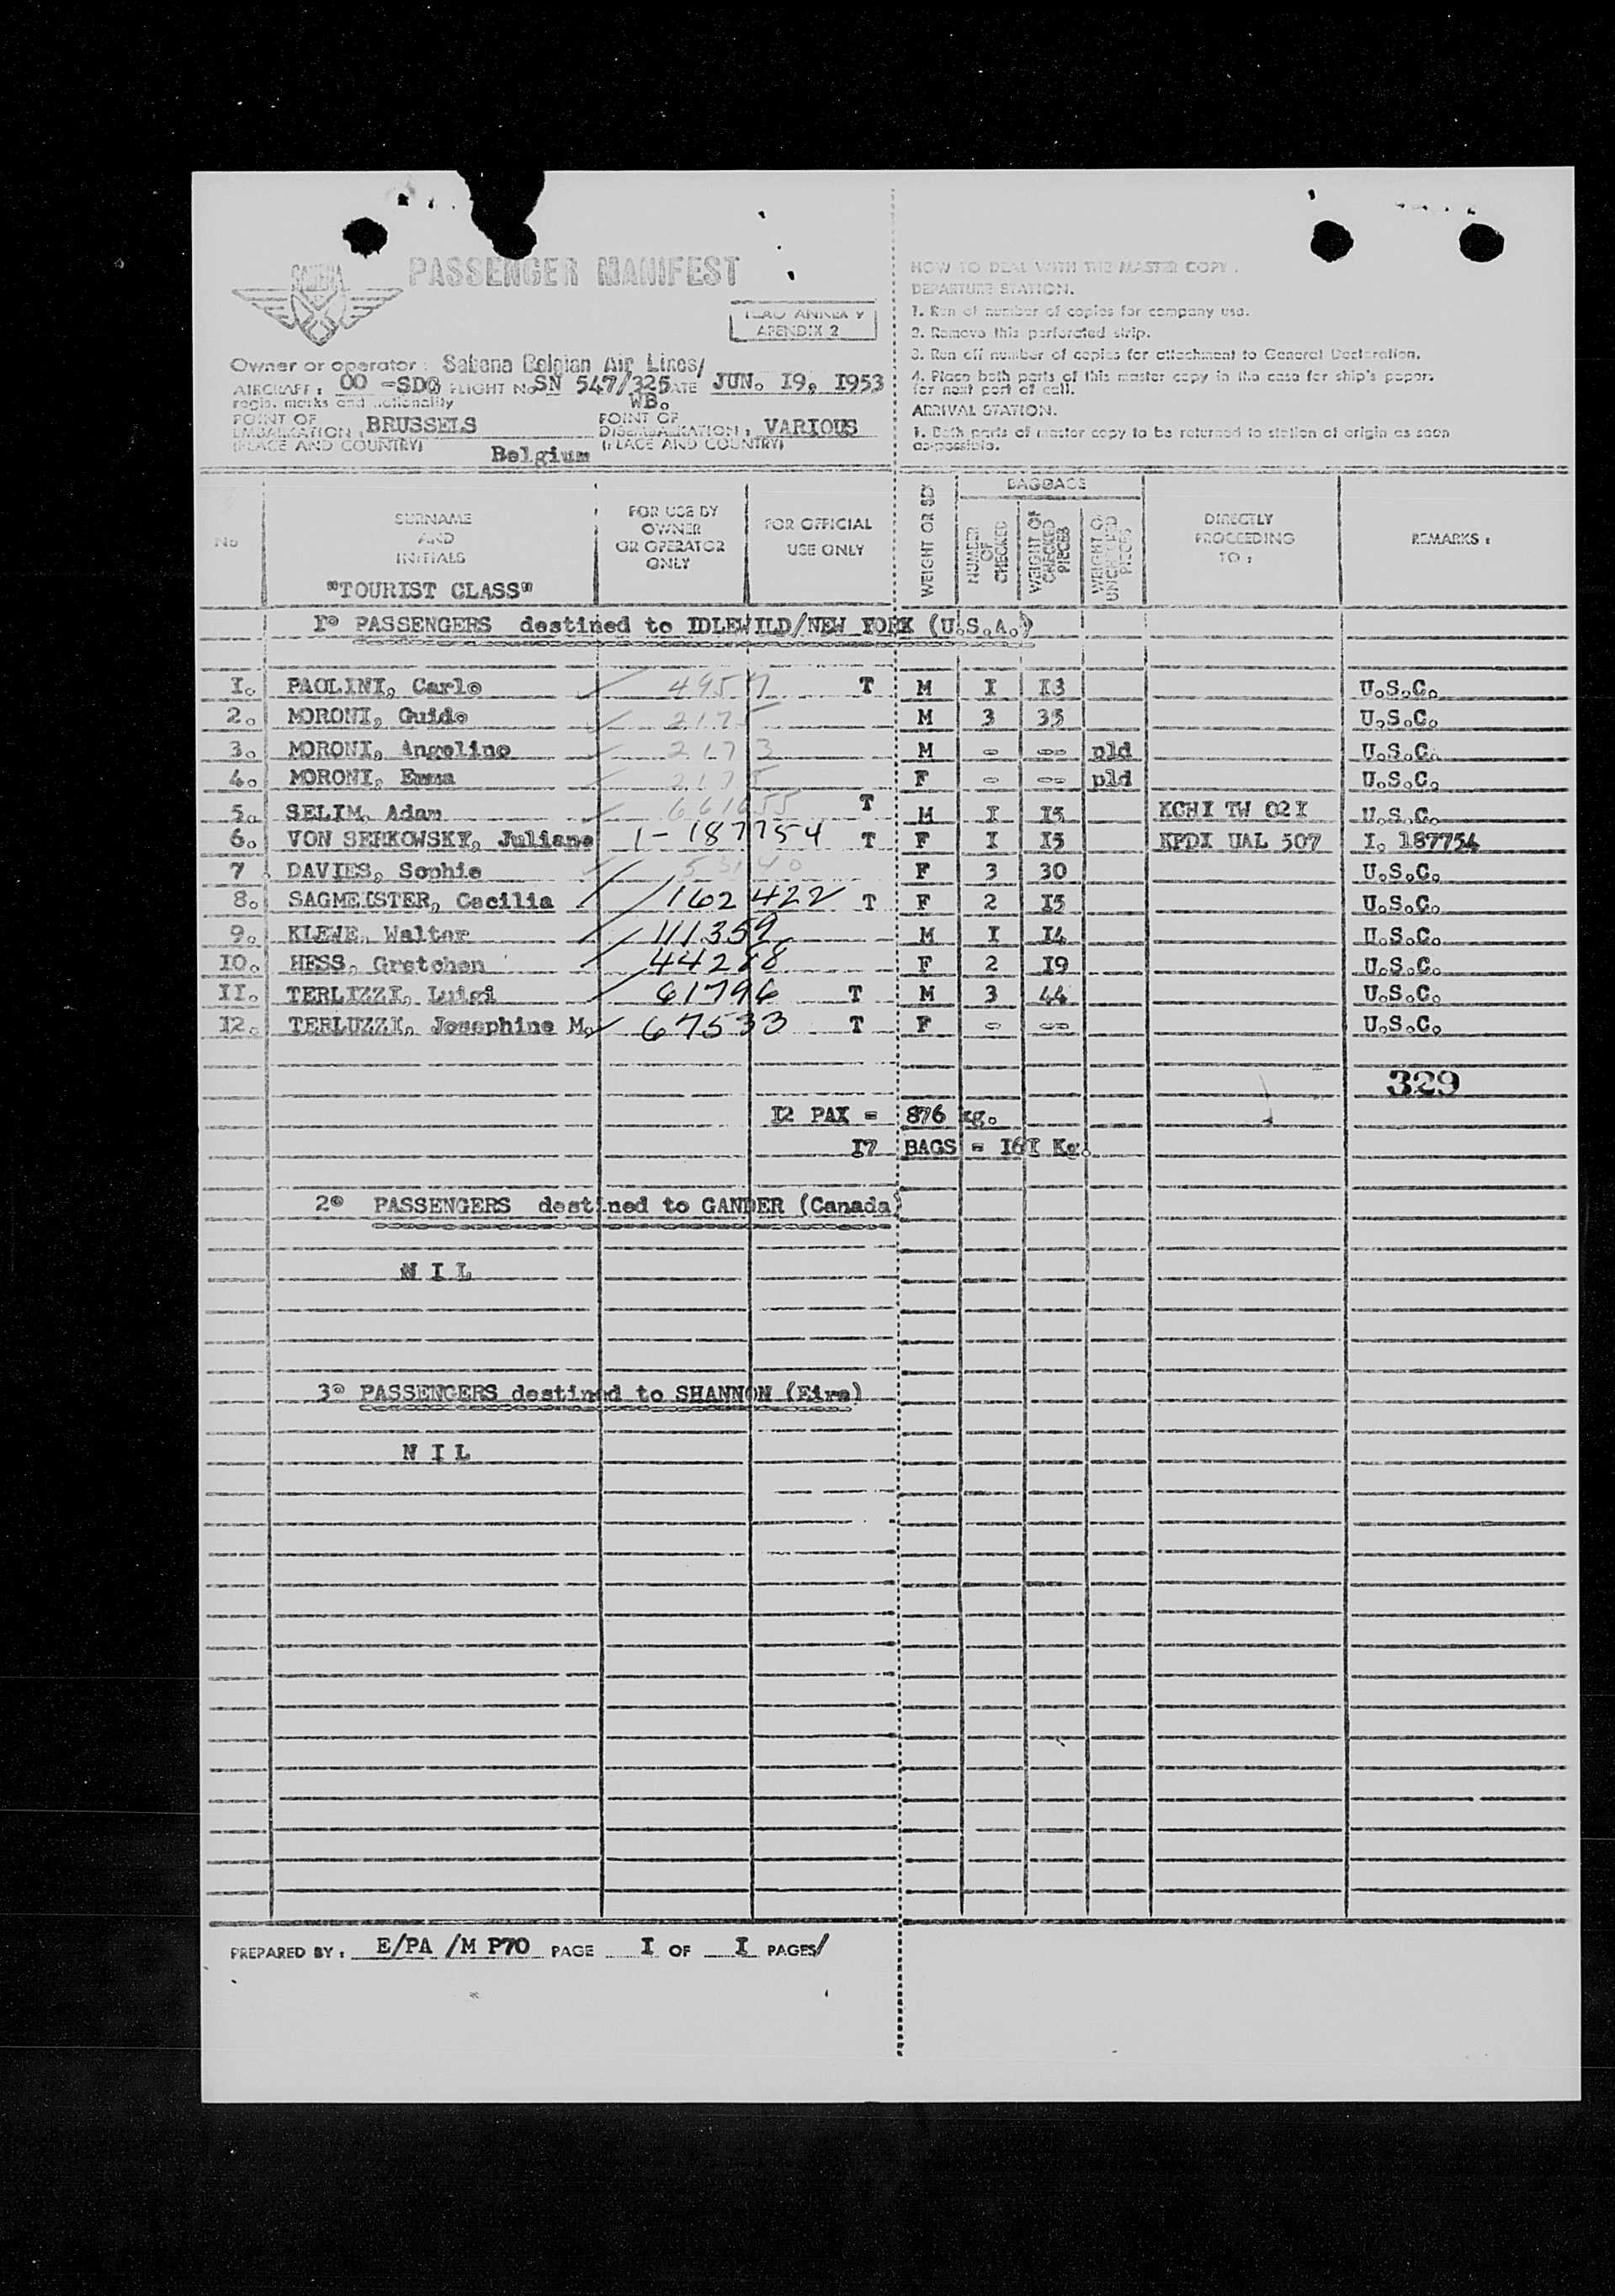 SABENA
PASSENGER MANIFEST
ICAO ANNEX 9
APENDIX 2
Owner or operator : Sabena Belgian Air Lines/
AIRCRAFT : OO -SDG FLIGHT No SN 547/325 DATE JUN. I9, I953
regis. marks and nationality WB.
POINT OF EMBARKATION : BRUSSELS
(PLACE AND COUNTRY) Belgium
POINT OF DISEMBARKATION : VARIOUS
(PLACE AND COUNTRY)
HOW TO DEAL WITH THE MASTER COPY.
DEPARTURE STATION.
1. Run of number of copies for company use.
2. Remove this perforated strip.
3. Run off number of copies for attachment to General Declaration.
4. Place both parts of this master copy in the case for ship's papers
for next port of call.
ARRIVAL STATION.
1. Both parts of master copy to be returned to station of origin as soon
as possible.
No
SURNAME AND INITIALS
FOR USE BY OWNER OR OPERATOR ONLY
FOR OFFICIAL USE ONLY
WEIGHT OR SEX
BAGGAGE
NUMBER OF CHECKED
WEIGHT OF CHECKED PIECES
WEIGHT OF UNCHECKED PIECES
DIRECTLY PROCEEDING TO :
REMARKS :
"TOURIST CLASS"
I° PASSENGERS destined to IDLEWILD/NEW YORK (U.S.A.)
I. PAOLINI, Carlo 4957 T M I I3 U.S.C.
2. MORONI, Guido 2175 M 3 35 U.S.C.
3. MORONI, Angelino 2173 M - -- pld U.S.C.
4. MORONI, Emma 2175 F - -- pld U.S.C.
5. SELIM, Adam 661655 T M I I5 KCHI TW 02I U.S.C.
6. VON SERKOWSKY, Juliane 1-187754 T F I I5 KPDX UAL 507 I. 187754
7 DAVIES, Sophie 53140 F 3 30 U.S.C.
8. SAGMEISTER, Cecilia 162422 T F 2 I5 U.S.C.
9. KLEWE, Walter 111359 M I I4 U.S.C.
I0. HESS, Gretchen 44288 F 2 I9 U.S.C.
II. TERLIZZI, Luigi 61796 T M 3 44 U.S.C.
I2. TERLUZZI, Josephine M. 67533 T F - -- U.S.C.
329
I2 PAX = 876 kg.
I7 BAGS = I6I Kg.
2° PASSENGERS destined to GANDER (Canada)
N I L
3° PASSENGERS destined to SHANNON (Eire)
N I L
PREPARED BY : E/PA /M P70 PAGE I OF I PAGES/